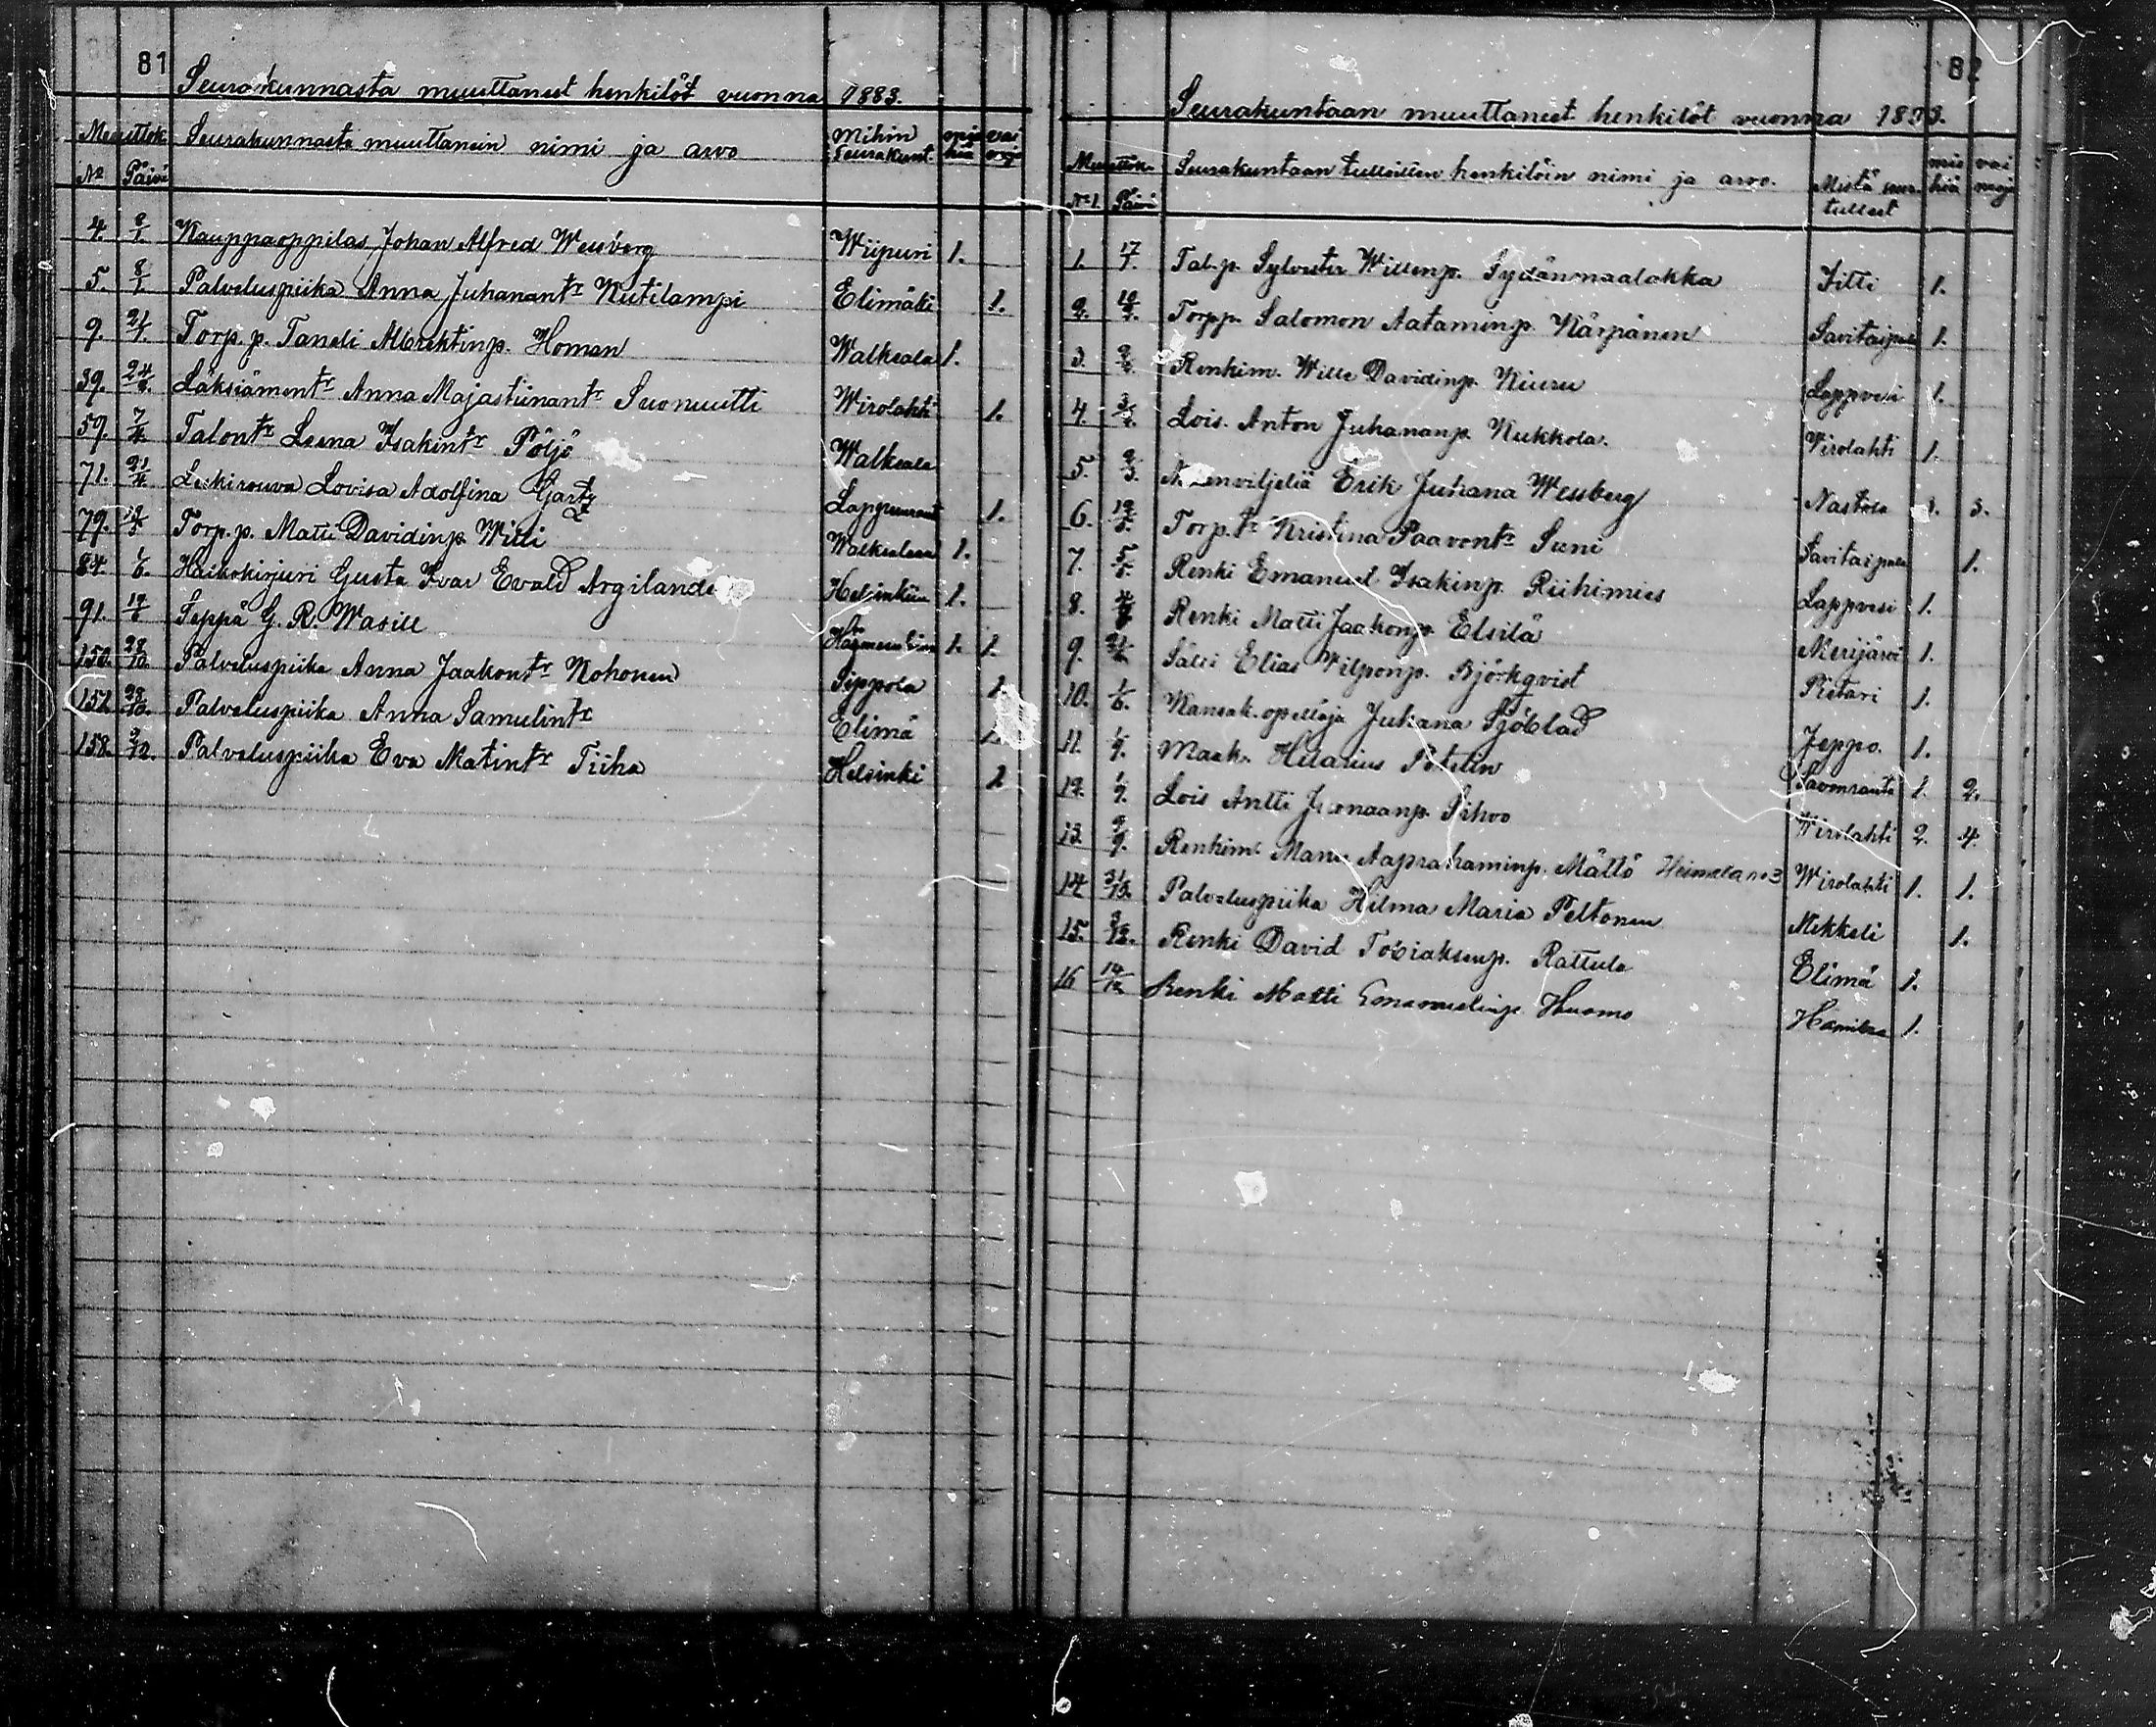 81
Seurakunnasta muuttaneet henkilöt vuonna 1883.
Muuttok. Seurakunnasta muuttanein nimi ja arvo Mihin Seurakunt.
No Päivä
4. Kauppaoppilas Johan Alfred Wessberg Wiipuri 1.
5. 8/1. Palveluspiika Anna Juhanantr Kutilampi Elimäki 1.
9. 21/1. Torp. p. Taneli Albrehtinp. Homan Walkeala 1.
39. 24/3. Anna Majastiinantr Suonuutti Wirolahti 1.
59. 7/4. Talontr Leena Isakintr Pöljö Walkeala
71. 21/4. Leskirouva Lovisa Adolfina Gartz Lappeenrant 1.
79. Torp. p. Matti Davidinp. Willi Walkealaan 1.
84. 1/6. Gusta Ivar Evald Argilande Helsinkiin 1.
91. 19/6 Seppä G. R. Wasill 1. 1.
150. 28/10. Palveluspiika Anna Jaakontr Kohonen Sippola 1
151. 28/10. Palveluspiika Anna Samulintr Elimä 1.
158. 3/12. Palveluspiika Eva Matintr Tiiha Helsinki 1
82
Seurakuntaan muuttaneet henkilöt vuonna 1883.
Muuttok. Seurakuntaan tulleitten henkilöin nimi ja arvo. Mistä seur. tulleet mie hiä vai moja
No 1. Päivä
1. 17/1. Tal. p. Sylvester Willenp. Sydänmaalakka Iitti 1.
2. Torpp. Salomon Aataminp. Kärpänen Savitaipale 1.
3. Renkim. Wille Davidinp. Kiuru Lappvesi 1.
4. Lois. Anton Juhananp. Kukkola. Virolahti 1.
5. 2/3. Erik Juhana Wessberg Nastola 3.
6. Torp. tr Kristina Paavontr Suni Savitaipale 1.
7. 5/5. Renki Emanuel Isakinp. Riihimies Lappvesi 1.
8. Renki Matti Jaakonp. Elsilä Nerijärvi 1.
9. Sälli Elias Wilponp. Björkqvist Pietari 1.
10. 1/6. Kansak. opettaja Juhana Sjöblad Jeppo. 1.
11. 1/9. Maak. Hilarius Potilin Savonranta 1. 2.
12. 1/9. Lois Antti Joonaanp. Sihvo Wirolahti 2. 4.
13. 9/9. Renkim. Manu Aaprahaminp. Mättö Heimala no 3 Wirolahti 1. 1.
14. 31/10. Palveluspiika Hilma Maria Peltonen Mikkeli 1.
15. 3/12. Renki David Tobiaksenp. Rattula Elimä 1.
16 14/12 Renki Matti Emanuelinp. Huomo Hamina 1.